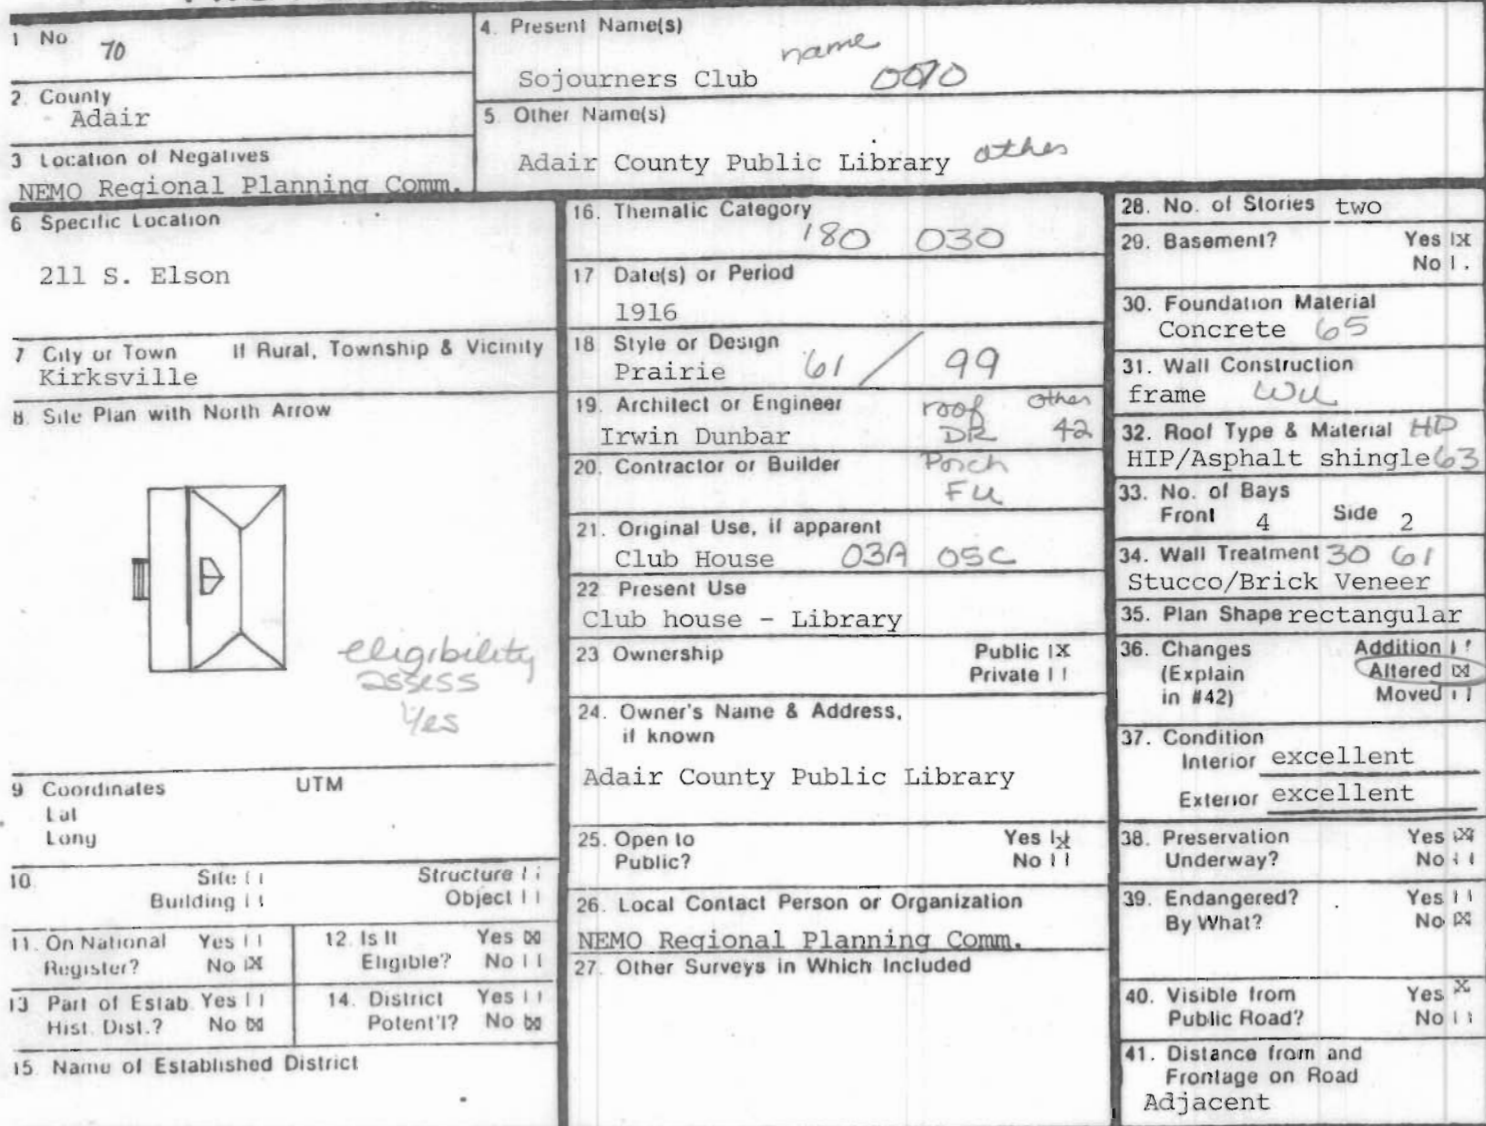 1 No.
70
2. County
Adair
3 Location of Negatives
NEMO Regional Planning Comm.
4. Present Name(s)
name
Sojourners Club 0070
5. Other Name(s)
Adair County Public Library other
6 Specific Location
211 S. Elson
7 City or Town If Rural, Township & Vicinity
Kirksville
8. Site Plan with North Arrow
eligibility
assess
Yes
9 Coordinates UTM
Lat
Long
10 Site Structure
Building Object
11. On National Yes
Register? No X
12. Is It Yes X
Eligible? No
13 Part of Estab. Yes
Hist. Dist.? No X
14. District Yes
Potent'l? No X
15. Name of Established District
16. Thematic Category
180 030
17 Date(s) or Period
1916
18 Style or Design
Prairie 61 / 99
19. Architect or Engineer roof other
Irwin Dunbar DR 42
20. Contractor or Builder Porch
FU
21. Original Use, if apparent
Club House 03A 05C
22. Present Use
Club house - Library
23 Ownership Public X
Private
24. Owner's Name & Address,
if known
Adair County Public Library
25. Open to Yes X
Public? No
26. Local Contact Person or Organization
NEMO Regional Planning Comm.
27. Other Surveys in Which Included
28. No. of Stories two
29. Basement? Yes X
No
30. Foundation Material
Concrete 65
31. Wall Construction
frame WU
32. Roof Type & Material HD
HIP/Asphalt shingle 63
33. No. of Bays
Front 4 Side 2
34. Wall Treatment 30 61
Stucco/Brick Veneer
35. Plan Shape rectangular
36. Changes Addition
(Explain Altered X
in #42) Moved
37. Condition
Interior excellent
Exterior excellent
38. Preservation Yes X
Underway? No
39. Endangered? Yes
By What? No X
40. Visible from Yes X
Public Road? No
41. Distance from and
Frontage on Road
Adjacent